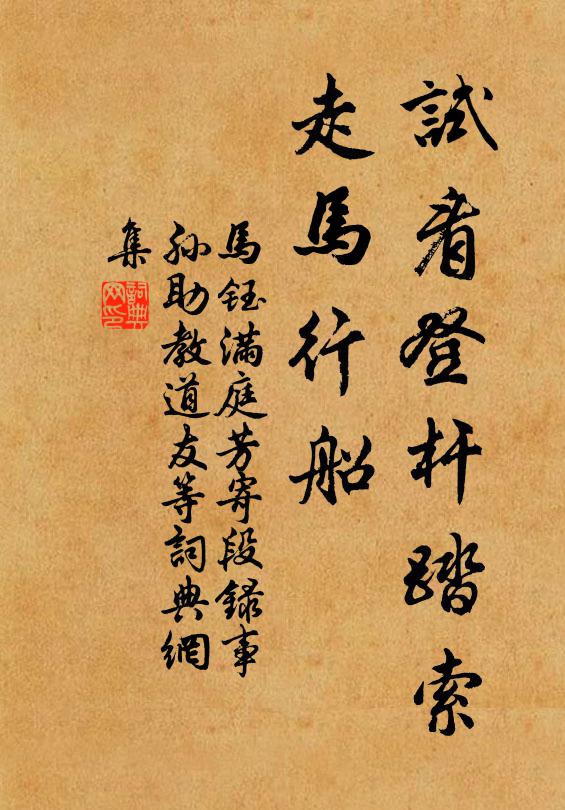 試看登杆踏索
走馬行船
馬鈺滿庭芳寄段錄事
孙助教道友等詞典網
集
詞典网印